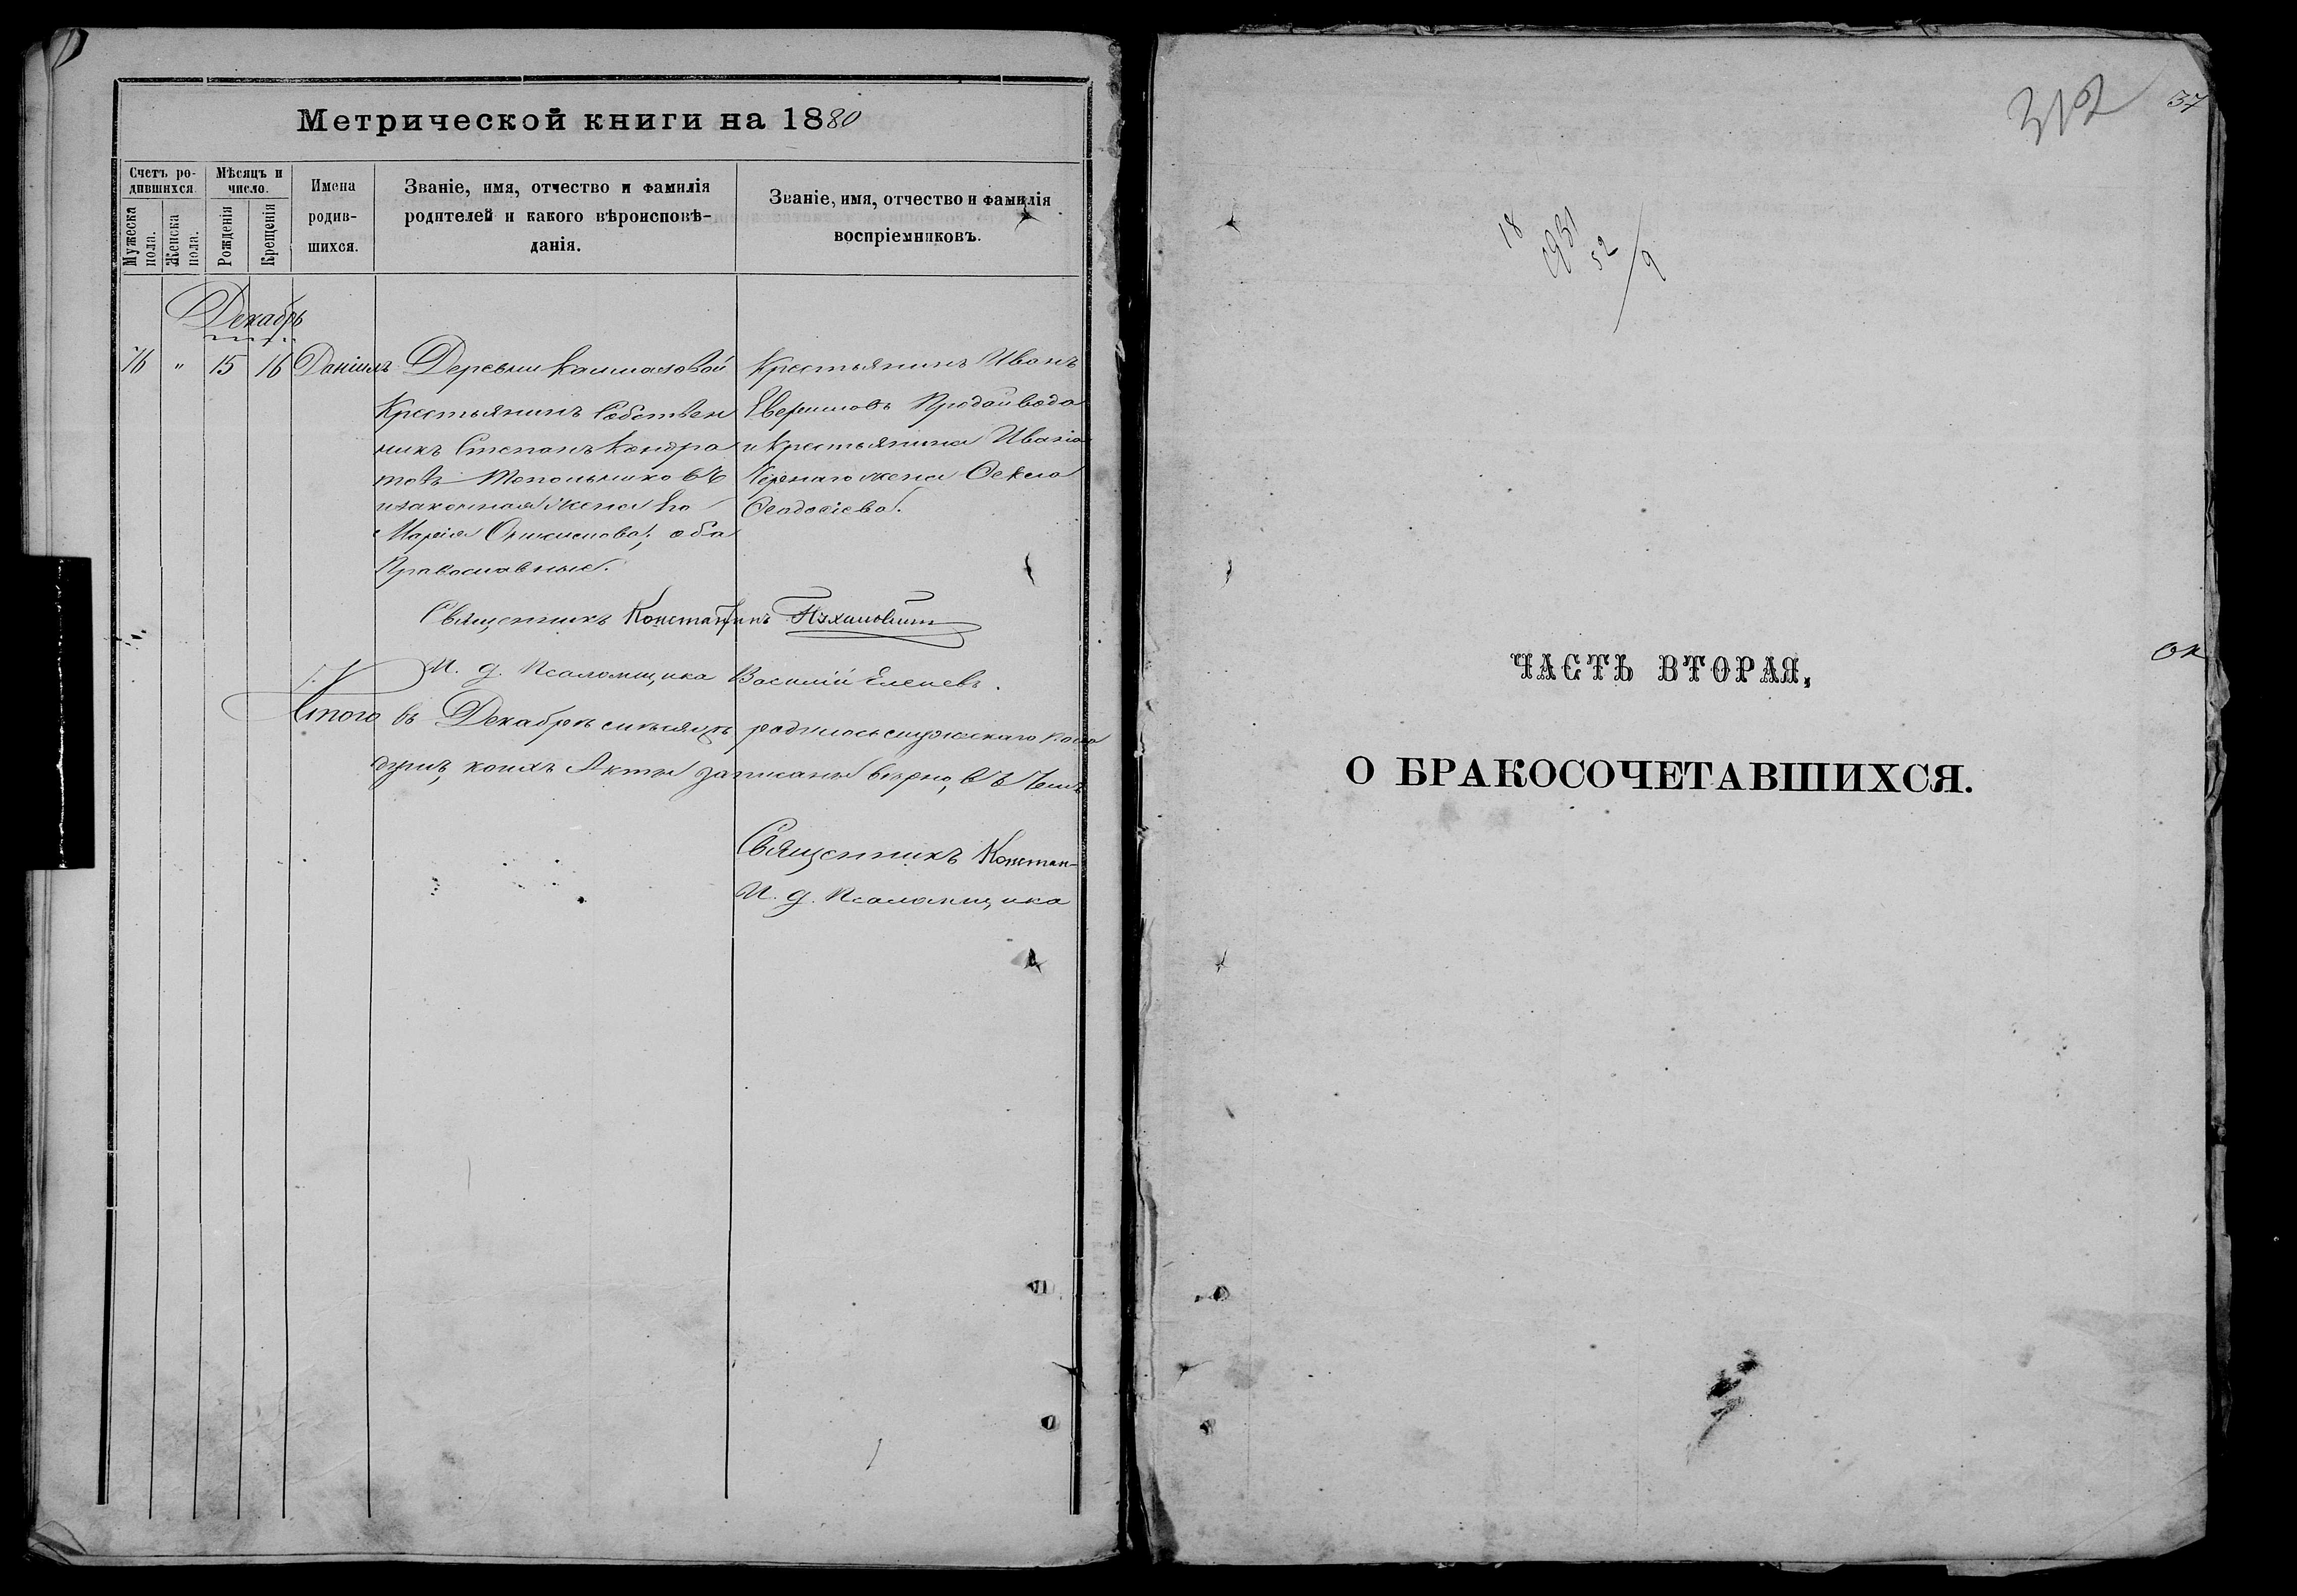 Метрической книги на 1880
Счетъ ро-
дившихся.
Мѣсяцъ и
число.
Мужеска
пола.
Женска
пола.
Рожденія
Крещенія
Имена
родив-
шихся.
Званіе, имя, отчество и фамилія
родителей и какого вѣроисповѣ-
данія.
Званіе, имя, отчество и фамилія
воспріемниковъ.
Декабрь
76 " 15 16 Даніилъ
Деревни
Крестьянинъ Собствен
никъ Степанъ Кондра
товъ Топольниковъ
и законная жена его
Марія оба
Православные.
Крестьянинъ Иванъ
и крестьянина
жена Ѳекла
Ѳеодосіева.
Священникъ Константинъ
И. д. Псаломщика Василій Еленевъ.
Итого въ Декабрѣ мѣсяцѣ родилось мужескаго пола
душъ, коихъ Акты записаны вѣрно, въ чемъ
Священникъ Констан-
И. д. Псаломщика
312
37
18
52
9
ЧАСТЬ ВТОРАЯ,
О БРАКОСОЧЕТАВШИХСЯ.